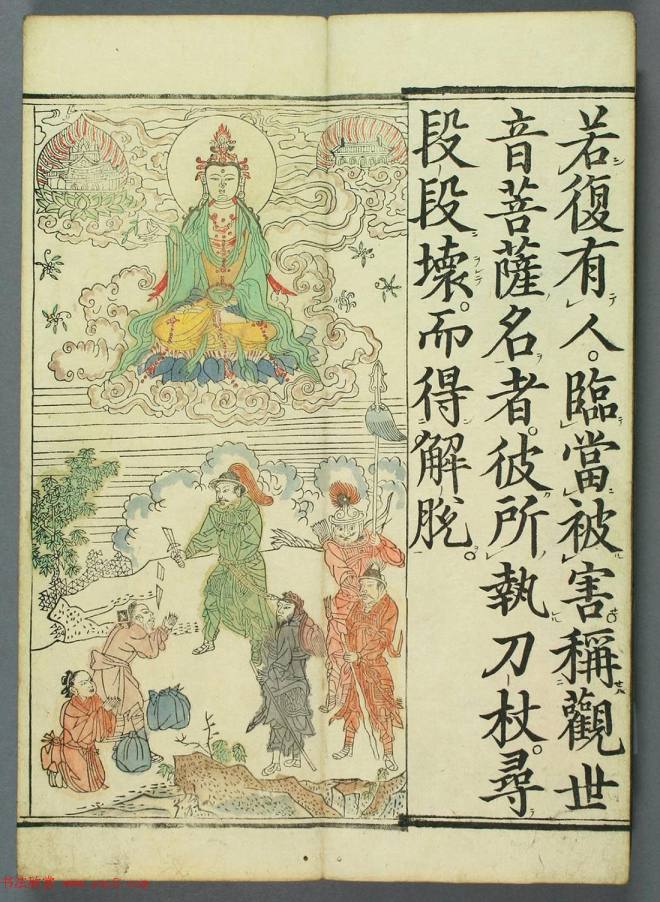 若復有人。臨當被害稱觀世
音菩薩名者。彼所執刀杖。尋
段段壞。而得解脫。